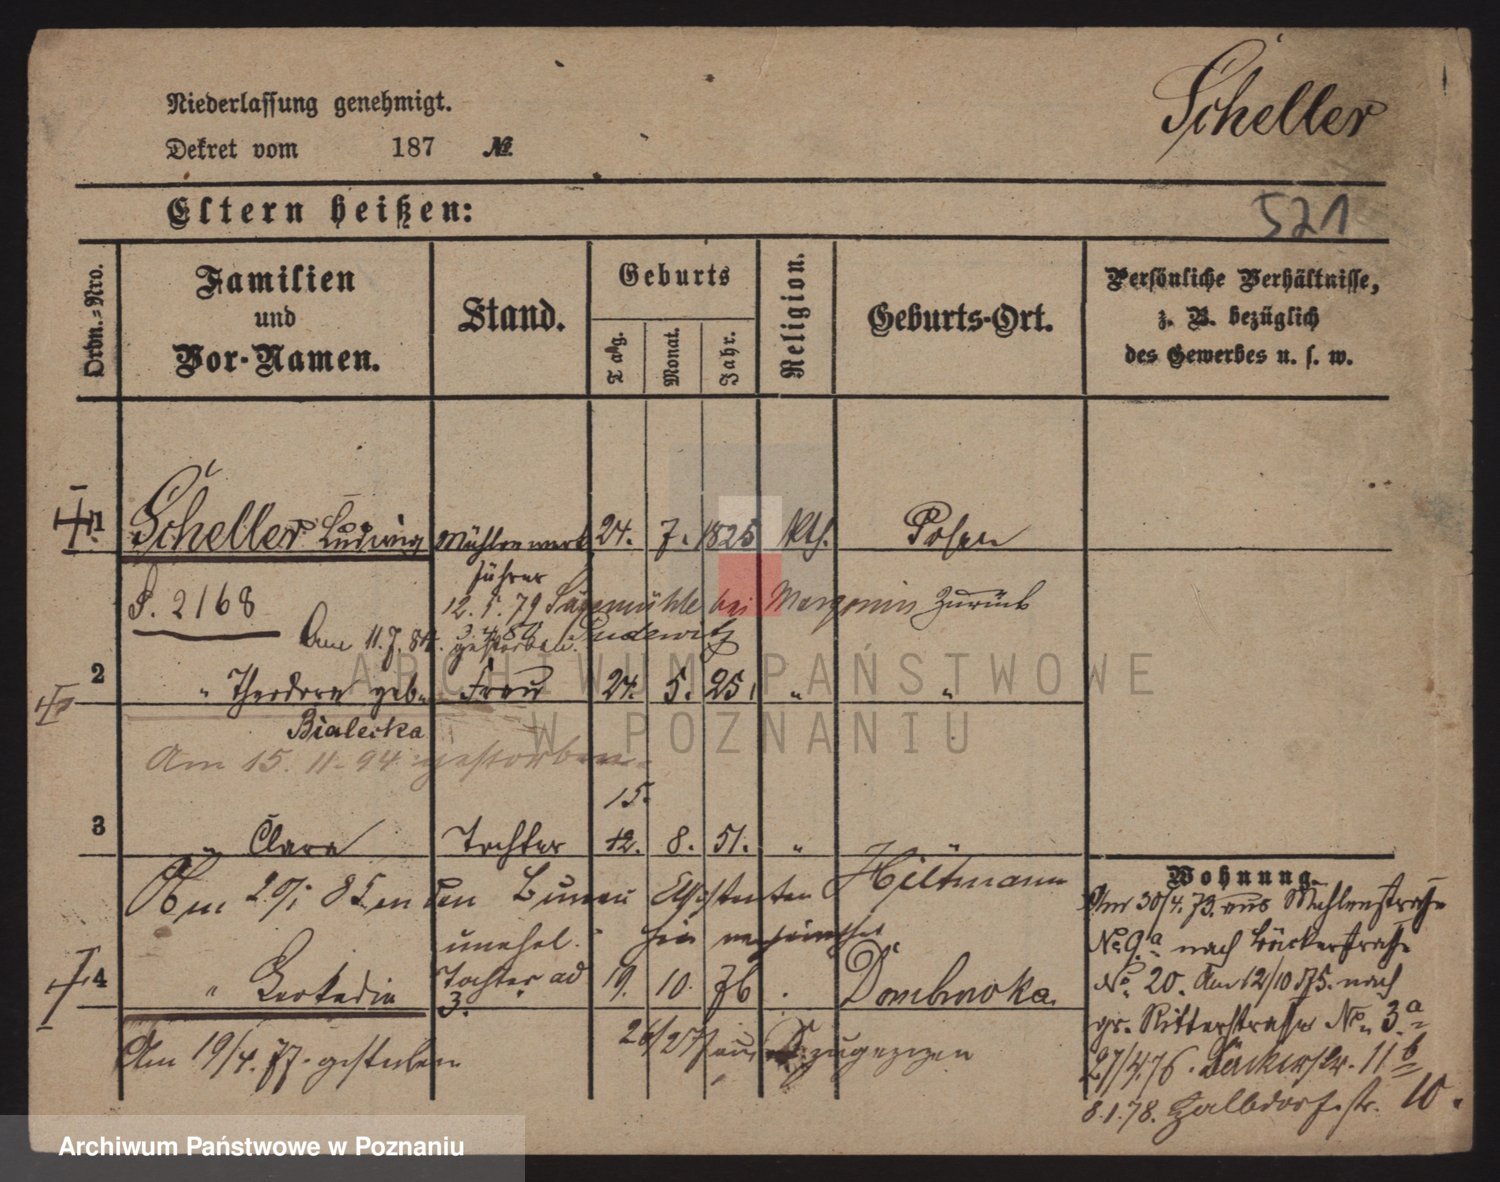 Scheller
Niederlassung genehmigt.
Dekret vom 187 №.
Eltern heißen:
521
Ordn.-Nro.
Familien
und
Vor-Namen.
Stand.
Geburts
Tag.
Monat.
Jahr.
Religion.
Geburts-Ort.
Persönliche Verhältnisse,
z. B. bezüglich
des Gewerbes u. s. w.
1 Scheller Ludwig Mühlenwerk 24. 7. 1825 kth. Posen
führer
S. 2168
12. 5. 79 Sägemühle bei Margonin zurück
Am 11. 7. 84. gestorben. Pudewitz
2 " Theodora geb. Frau 24. 5. 25. " "
Bialecka
Am 15. 11. 94 gestorben
15.
3 " Clara Tochter 12. 8. 51. " "
Am den Hiltmann
unehel.
4 " Tochter ad 19. 10. 76 Dombrowka
3.
Am 19/4. 77. gestorben
26/2 77 aus zugezogen
Wohnung.
Am 30/4. 73. aus Mühlenstraße
No. 9.a nach Bäckerstraße
No. 20. Am 12/10 75. nach
gr. Ritterstraße No. 3.a
27/4 76. Bäckerstr. 11b
8. 1. 78. Halbdorfstr. 10.
ARCHIWUM PAŃSTWOWE
W POZNANIU
Archiwum Państwowe w Poznaniu